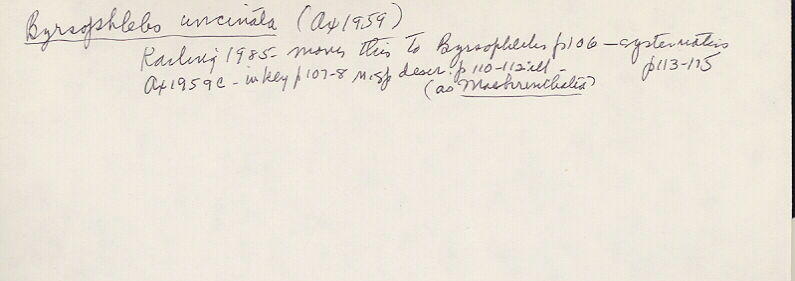 Byrsophlebs uncinata (Ax 1959)
Karling 1985 - moves this to Byrsophlebs p106 - systematics p113-115
Ax 1959c - in key p107-8 n.sp descr. p 110-112 ill -
(as Maehrenthalia)